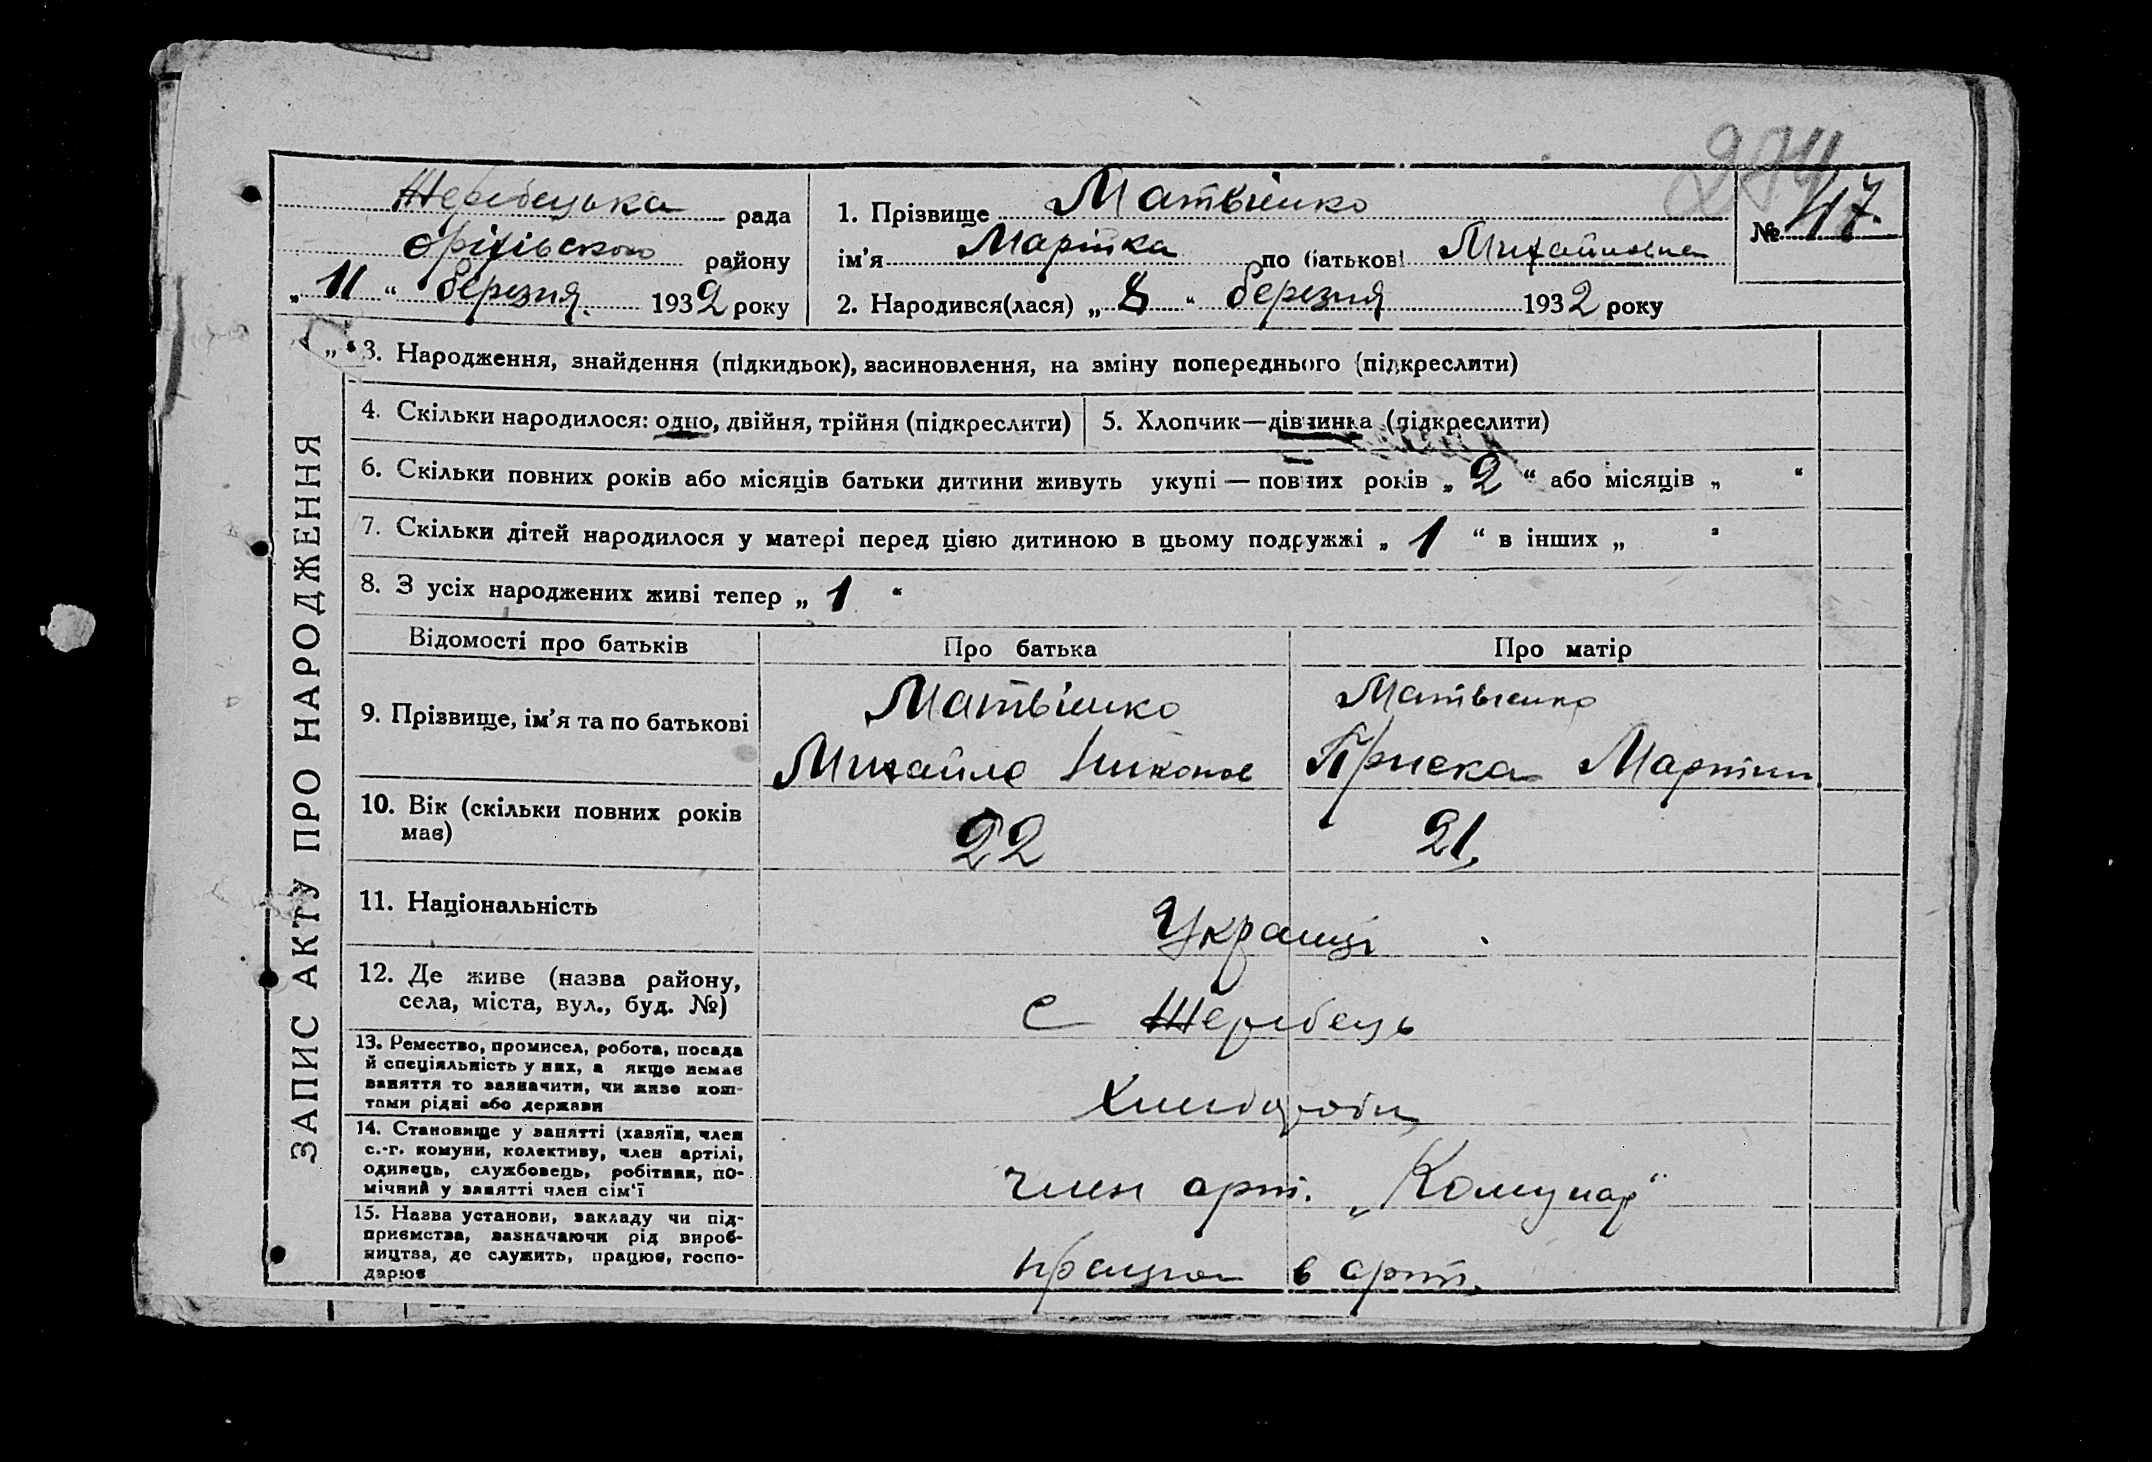 274
Жеребецька рада
Оріхівського району
„ 11 “ березня 1932 року
1. Прізвище Матвієнко
ім’я Марійка по батькові Михайловна
2. Народився(лася) „ 8 “ березня 1932 року
№ 47.
ЗАПИС АКТУ ПРО НАРОДЖЕННЯ
3. Народження, знайдення (підкидьок), засиновлення, на зміну попереднього (підкреслити)
4. Скільки народилося: одно, двійня, трійня (підкреслити)
5. Хлопчик—дівчинка (підкреслити)
6. Скільки повних років або місяців батьки дитини живуть укупі — повних років „ 2 “ або місяців „ “
7. Скільки дітей народилося у матері перед цією дитиною в цьому подружжі „ 1 “ в інших „ “
8. З усіх народжених живі тепер „ 1 “
Відомості про батьків
Про батька
Про матір
9. Прізвище, ім’я та по батькові
Матвієнко
Михайло Никонов
Матвієнко
Приска Мартин
10. Вік (скільки повних років
має)
22
21
11. Національність
Українці
12. Де живе (назва району,
села, міста, вул., буд. №)
с Жеребець
13. Ремество, промисел, робота, посада
й спеціяльність у них, а якщо немає
заняття то зазначити, чи живе кош-
тами рідні або держави
Хлібороби
14. Становище у занятті (хазяїн, член
с.-г. комуни, колективу, член артілі,
одинець, службовець, робітник, по-
мічний у занятті член сім’ї
член арт. „Комунар“
15. Назва установи, закладу чи під-
приємства, зазначаючи рід вироб-
ництва, де служить, працює, госпо-
дарює
в арт.